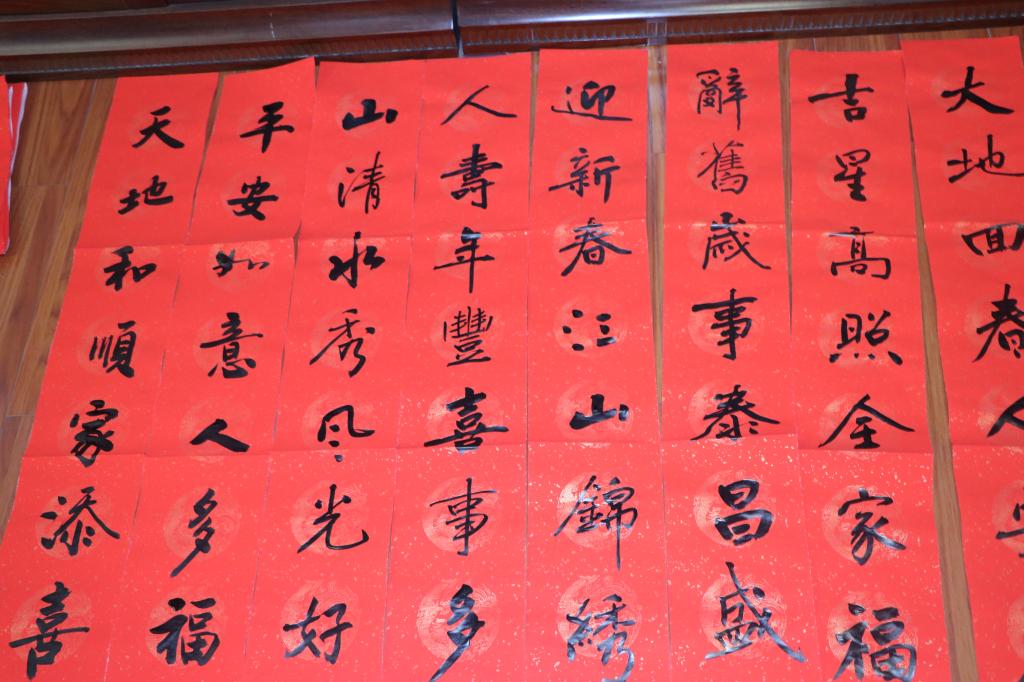 天地和順家添喜
平安如意人多福
山清水秀风光好
人壽年豐喜事多
迎新春江山錦綉
辭舊歲事泰昌盛
吉星高照全家福
大地回春人